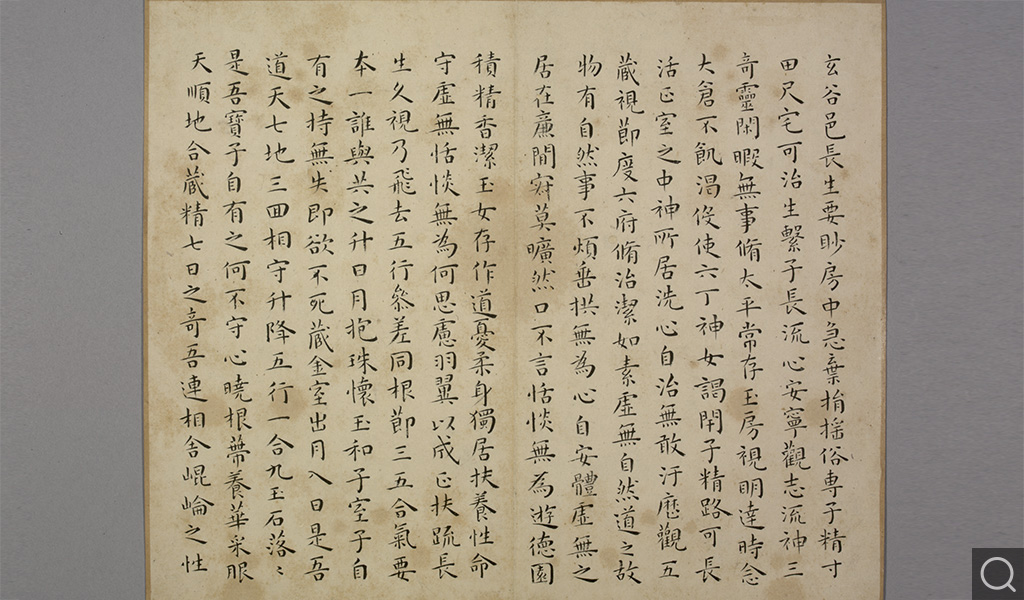 玄谷邑長生要眇房中急棄捐搖俗専子精寸
田尺宅可治生繫子長流心安寧觀志流神三
奇靈閑暇無事脩太平常存玉房視明達時念
大倉不飢渴伇使六丁神女謁閇子精路可長
活正室之中神所居洗心自治無敢汙歷觀五
藏視節度六府脩治潔如素虛無自然道之故
物有自然事不煩垂拱無為心自安體虛無之
居在廉閒寂莫曠然口不言恬惔無為遊德園
積精香潔玉女存作道憂柔身獨居扶養性命
守虛無恬惔無為何思慮羽翼以成正扶踈長
生久視乃飛去五行叅差同根節三五合氣要
本一誰與共之升日月抱珠懷玉和子室子自
有之持無失即欲不死藏金室出月入日是吾
道天七地三回相守升降五行一合九玉石落〻
是吾寶子自有之何不守心曉根蔕養華采服
天順地合藏精七日之奇吾連相舍崐崘之性